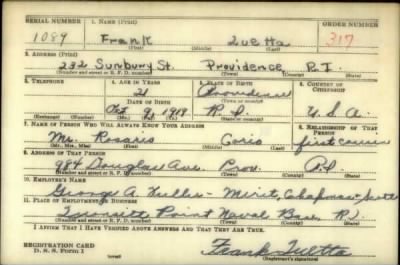 SERIAL NUMBER 1. NAME (Print) ORDER NUMBER
1089 Frank Zuetta 317
(First) (Middle) (Last)
2. ADDRESS (Print)
232 Sunbury St. Providence, R.I.
(Number and street or R. F. D. number) (Town) (County) (State)
3. TELEPHONE 4. AGE IN YEARS 5. PLACE OF BIRTH 6. COUNTRY OF CITIZENSHIP
21 Providence
DATE OF BIRTH (Town or county)
Oct 9, 1919 R.I. U.S.A.
(Exchange) (Number) (Mo.) (Day) (Yr.) (State or country)
7. NAME OF PERSON WHO WILL ALWAYS KNOW YOUR ADDRESS 8. RELATIONSHIP OF THAT PERSON
Mr. Rosario first cousin
(Mr., Mrs., Miss) (First) (Middle) (Last)
9. ADDRESS OF THAT PERSON
984 Douglas Ave. Prov. R.I.
(Number and street or R. F. D. number) (Town) (County) (State)
10. EMPLOYER'S NAME
George A. Fuller - Merritt, Chapman - Scott
11. PLACE OF EMPLOYMENT OR BUSINESS
Point Naval Base R.I.
(Number and street or R. F. D. number) (Town) (County) (State)
I AFFIRM THAT I HAVE VERIFIED ABOVE ANSWERS AND THAT THEY ARE TRUE.
REGISTRATION CARD
D. S. S. Form 1 (over) (Registrant's signature)
Frank